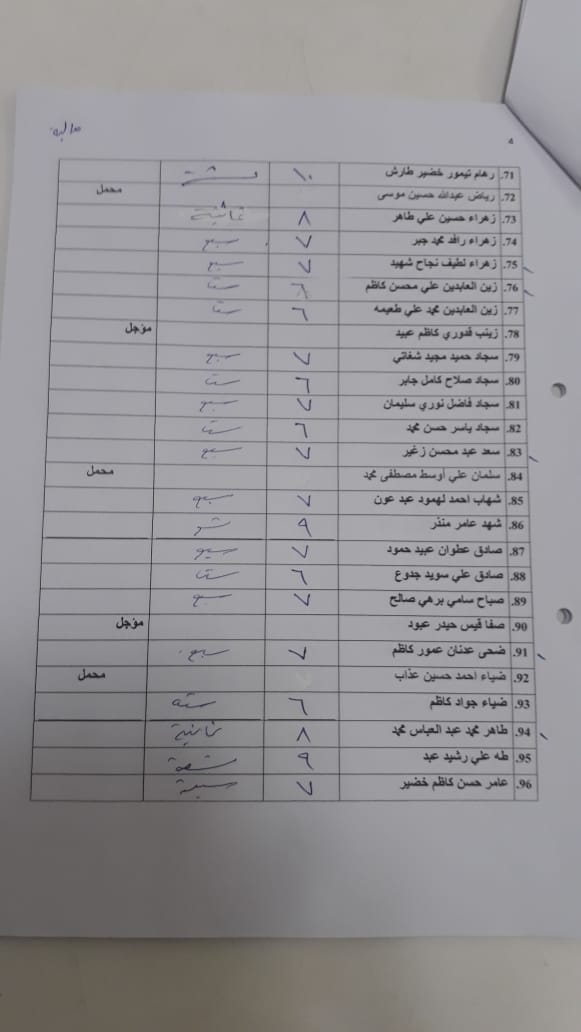 مالية
4
71. رهام تيمور خضير طارش ١٠ عشرة
72. رياض عبدالله حسين موسى محمل
73. زهراء حسين علي طاهر ٨ ثمانية
74. زهراء رافد محمد جبر ٧ سبع
75. زهراء لطيف نجاح شهيد ٧ سبع
76. زين العابدين علي محسن كاظم ٦ ست
77. زين العابدين محمد علي طعيمه ٦ ست
78. زينب قدوري كاظم عبيد مؤجل
79. سجاد حميد مجيد شغاتي ٧ سبع
80. سجاد صلاح كامل جابر ٦ ست
81. سجاد فاضل نوري سليمان ٧ سبع
82. سجاد ياسر حسن محمد ٦ ست
83. سعد عبد محسن زغير ٧ سبع
84. سلمان علي أوسط مصطفى محمد محمل
85. شهاب احمد لهمود عبد عون ٧ سبع
86. شهد عامر منذر ٩
87. صادق عطوان عبيد حمود ٧ سبع
88. صادق علي سويد جدوع ٦ ست
89. صباح سامي برهي صالح ٧ سبع
90. صفا قيس حيدر عبود مؤجل
91. ضحى عدنان عمور كاظم ٧ سبع
92. ضياء احمد حسين عذاب محمل
93. ضياء جواد كاظم ٦ ستة
94. طاهر محمد عبد العباس محمد ٨ ثمانية
95. طه علي رشيد عبد ٩ تسعة
96. عامر حسن كاظم خضير ٧ سبعة